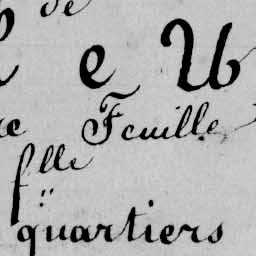 de
e U
Feuille
flle
quartiers